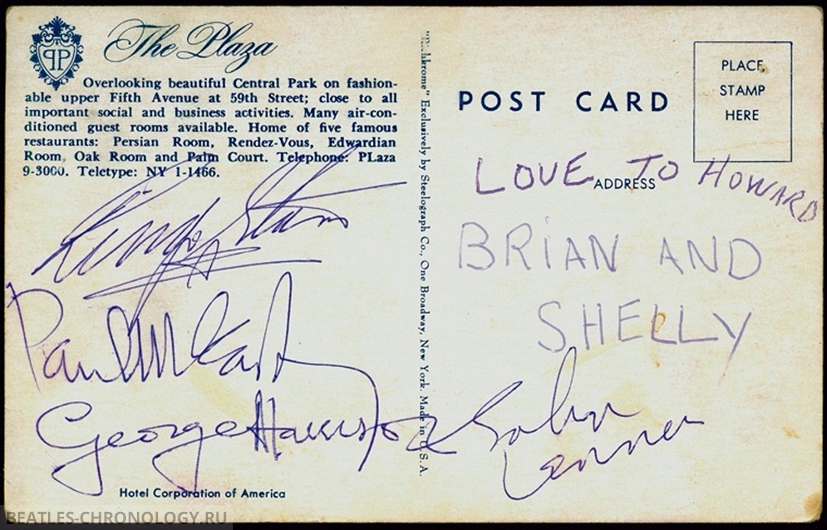 The Plaza
Overlooking beautiful Central Park on fashion-
able upper Fifth Avenue at 59th Street; close to all
important social and business activities. Many air-con-
ditioned guest rooms available. Home of five famous
restaurants: Persian Room, Rendez-Vous, Edwardian
Room, Oak Room and Palm Court. Telephone: PLaza
9-3000. Teletype: NY 1-1466.
Ringo Starr
Paul McCartney
George Harrison
John
Lennon
Hotel Corporation of America
Exclusively by Steelograph Co., One Broadway, New York. Made in U.S.A.
POST CARD
PLACE
STAMP
HERE
LOVE TO HOWARD
ADDRESS
BRIAN AND
SHELLY
BEATLES-CHRONOLOGY.RU